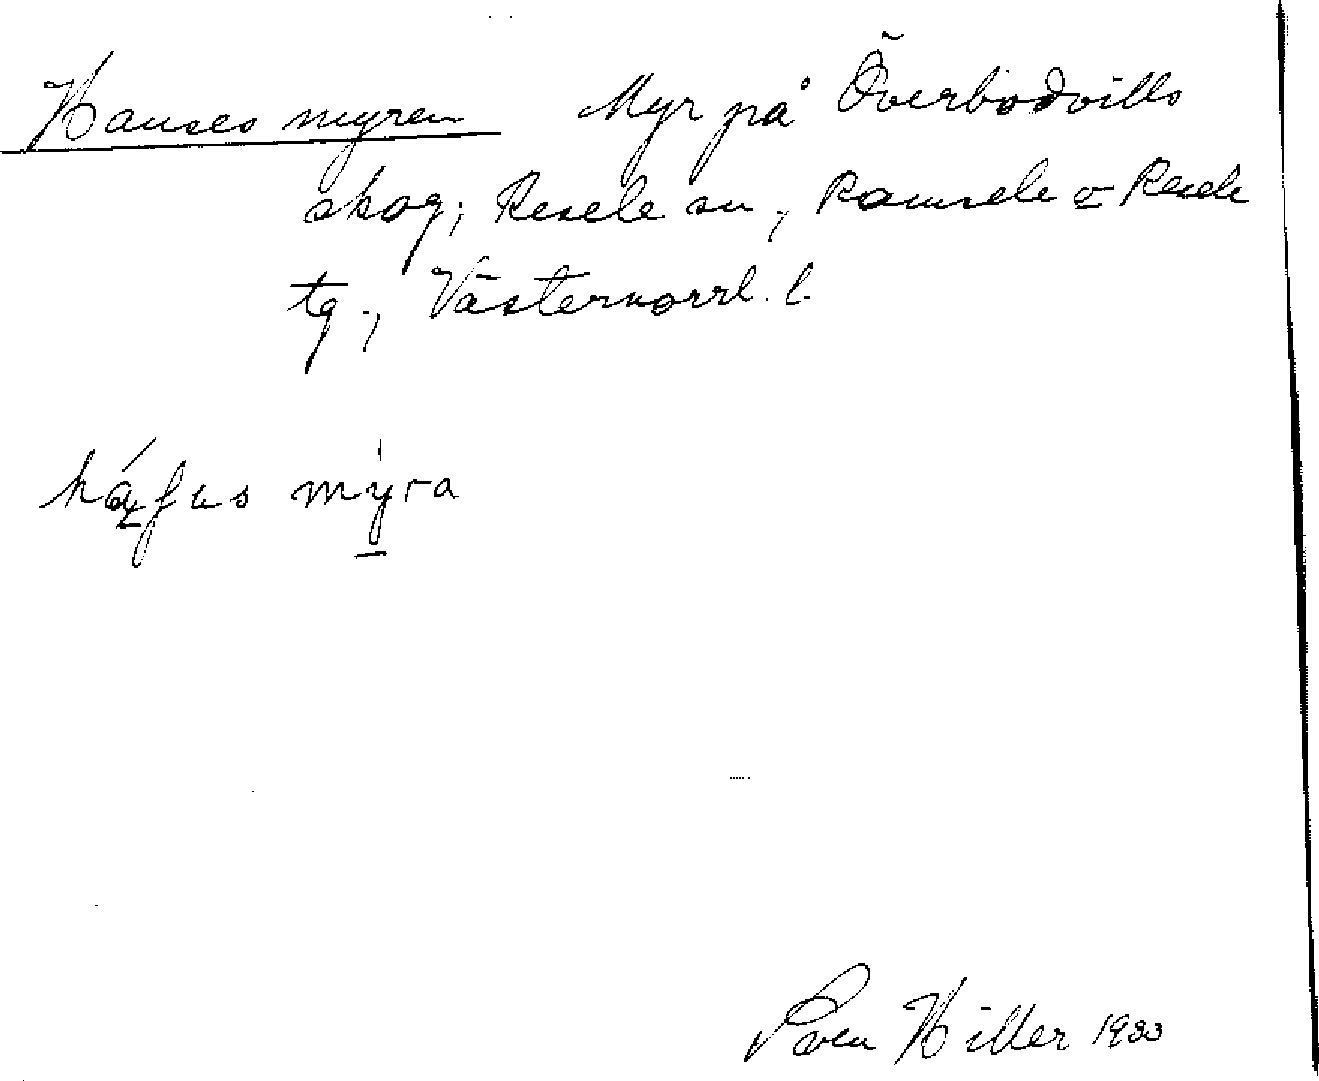 Hanses myren Myr på Överbodvills
skog; Resele sn, Ramsele o Resele
tg., Västernorrl. l.
mỳra
Sven Hiller 1933